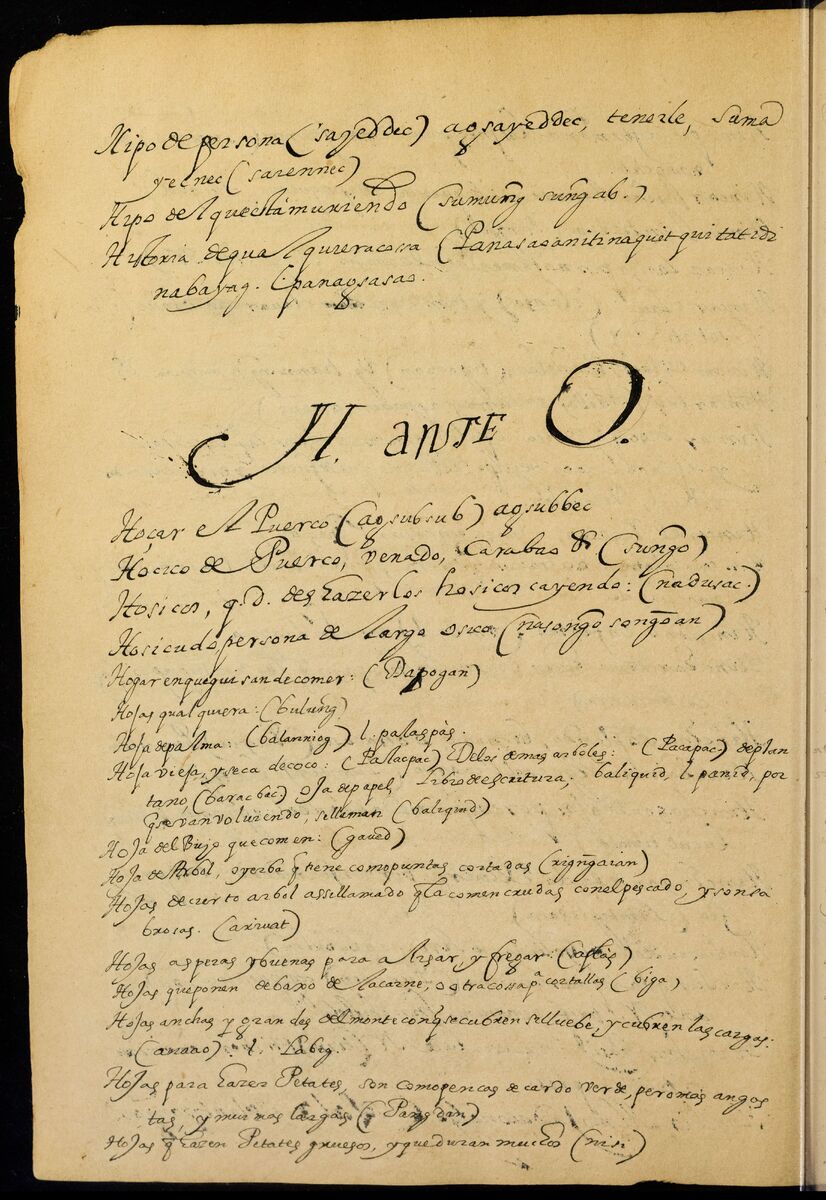 Hipo de persona (sayeddec) agsayeddec, tenerle, suma
yecnec (sarennec)
Hipo del que está muriendo (sumung̃ sung̃ab.)
Historia de qualquiera cossa (Panasaoanitinaquit quitatidi
nabayag. l. panagsasao.
H. ante O.
Hoçar el Puerco (agsubsub) agsubbec
Hocico de Puerco, venado, Carabao &c (sung̃o)
Hosicos, q.d. deshazer los hosicos cayendo: (nadusac.)
Hosicudo, persona de largo osico (nasong̃o song̃oan)
Hogar en que guisan de comer: (Dapogan)
Hojas qualquiera: (bulung̃)
Hoja de palma: (balanniog) l. palaspàs.
Hoja vieja, y seca de coco: (Palacpac) Delos demas arboles: (Pacapac) de plan
tano, (baracbac.) oja de papel, libro de escritura; baliquid, l. panid, por
q̃ se van volviendo; se llaman (baliquid.)
Hoja del Bujo que comen: (gaued)
Hoja de Arbol, o yerba q̃ tiene como puntas cortadas
Hojas de cierto arbol assi llamado q̃ la comen crudas con el pescado, y son sa
brosas. (ariuat)
Hojas asperas y buenas para alisar, y fregar: (aplàs)
Hojas que ponen debaxo de la carne, o otra cossa pa cortallas (biga)
Hojas anchas y grandes del monte con q̃ se cubren si lluebe, y cubren las cargas:
(anaao) l. Labig.
Hojas para hazer Petates, son como pencas de cardo verde, pero mas angos
tas, y mui mas largas (Pang̃dan)
Hojas q̃ hazen Petates gruesos, y que duran muchos (nisi)